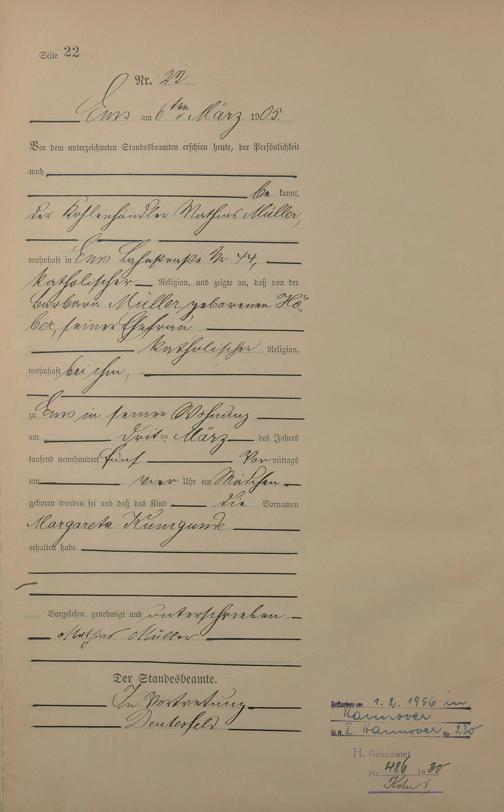 Seite 22
Nr. 22.
Ems am 6ten März 1905.
Vor dem unterzeichneten Standesbeamten erschien heute, der Persönlichkeit
nach
be kannt,
der Kohlenhändler Mathias Müller,
wohnhaft in Ems Lahnstraße Nr 44,
katholischer Religion, und zeigte an, daß von der
Barbara Müller geborenen Hö-
ber, seiner Ehefrau
katholischer Religion,
wohnhaft bei ihm,
zu Ems in seiner Wohnung
am dritten März des Jahres
tausend neunhundert fünf Vor mittags
um vier Uhr ein Mädchen
geboren worden sei und daß das Kind die Vornamen
Margareta Kunigunde
erhalten habe.
Vorgelesen, genehmigt und unterschrieben.
Mathias Müller
Der Standesbeamte.
In Vertretung
Deuterfeld
Gestorben am 1.2.1956 in
Hannover
St.A. Hannover Nr. 230
H. Geheiratet
Nr. 486 1930
Köln I